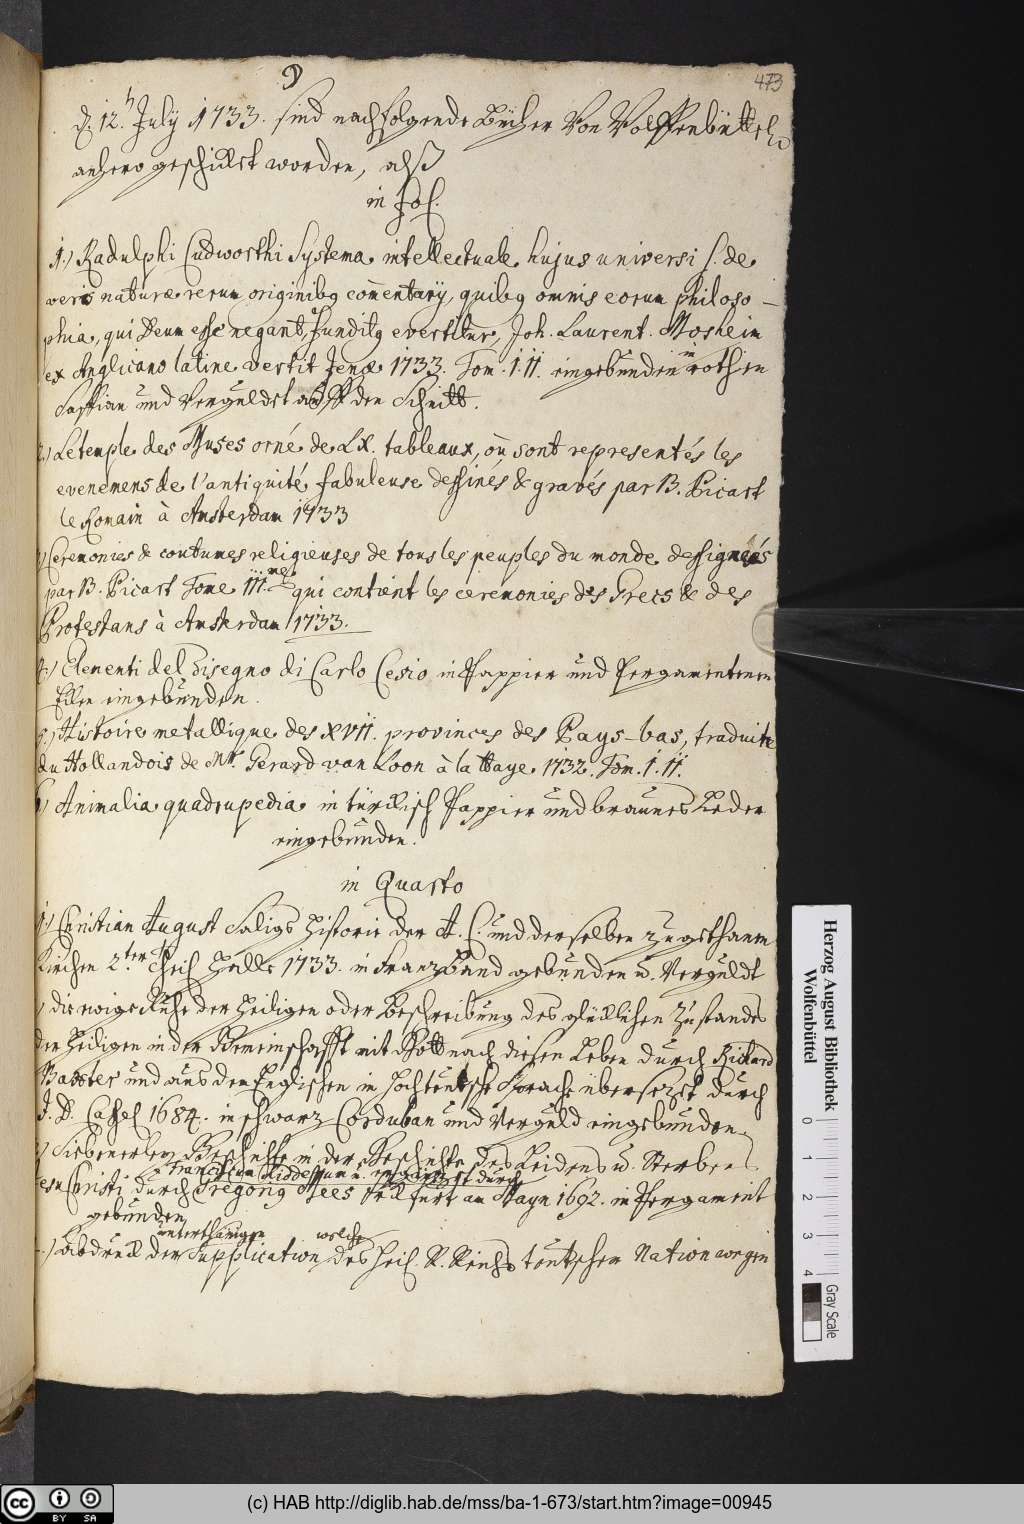 473
d. 12. July 1733. sind nachfolgende Bücher Von Wolffenbüttel
anhero geschickt worden, alß
in Fol.
1.) Radulphi Cudworthi Systema intellectuale hujus universi s. de
veris naturæ rerum originibq com̄entarÿ, quibq omnis eorum philoso-
phia, qui Deum esse negant, funditq evertitur, Joh. Laurent. Mosheim
ex Anglicano latine vertit Jenæ 1733. Tom. I. II. eingebunden in rothen
Saffian und Verguldet auff den Schnitt.
2.) Le temple des Muses orné de LX. tableaux, où sont representés les
evenemens de l'antiquité fabuleuse dessinés & gravés par B. Picart
le Romain à Amsterdam 1733
3.) Ceremonies & coutumes religieuses de tous les peuples du monde dessignées
par B. Picart Tome III.me qui contient les ceremonies des Grecs & des
Protestans à Amsterdam 1733.
4.) Elementi del Disegno di Carlo Cesio in Pappier und Pergamentenen
eingebunden.
5.) Histoire metallique des XVII. provinces des Pays-bas, traduite
du Hollandois de Mr. Gerard van Loon à la Haye 1732. Tom. I. II.
6.) Animalia quadrupedia in türckisch Pappier und braunes Leder
eingebunden.
in Quarto
1.) Christian August Saligs Historie der A. C. und derselben zugethanen
Kirchen 2.ter Theil Halle 1733. in Franzband gebunden u. Verguldt
2.) die ewige Ruhe der Heiligen oder Beschreibung des glücklichen Zustandes
der Heiligen in der Gemeinschafft mit Gott nach diesen Leben durch Richard
Baxter und aus dem Englischen in hochteutsche Sprache übersezet durch
J. D. Cassel 1684. in schwarz Corduban und Verguld eingebunden.
3.) Siebenerley Gesichte in der Geschichte des Leidens u. Sterbens
Franciscum Ridderum u. durch
Jesu Christi durch Gregorig Mees Franckfurt am Mayn 1692. in Pergament
gebunden
unterthänigen welche
4.) Abdruck der Supplication des Heil. R. Reichs teutscher Nation wegen
Herzog August Bibliothek
Wolfenbüttel
0 1 2 3 4
Gray Scale
cc BY SA
(c) HAB http://diglib.hab.de/mss/ba-1-673/start.htm?image=00945